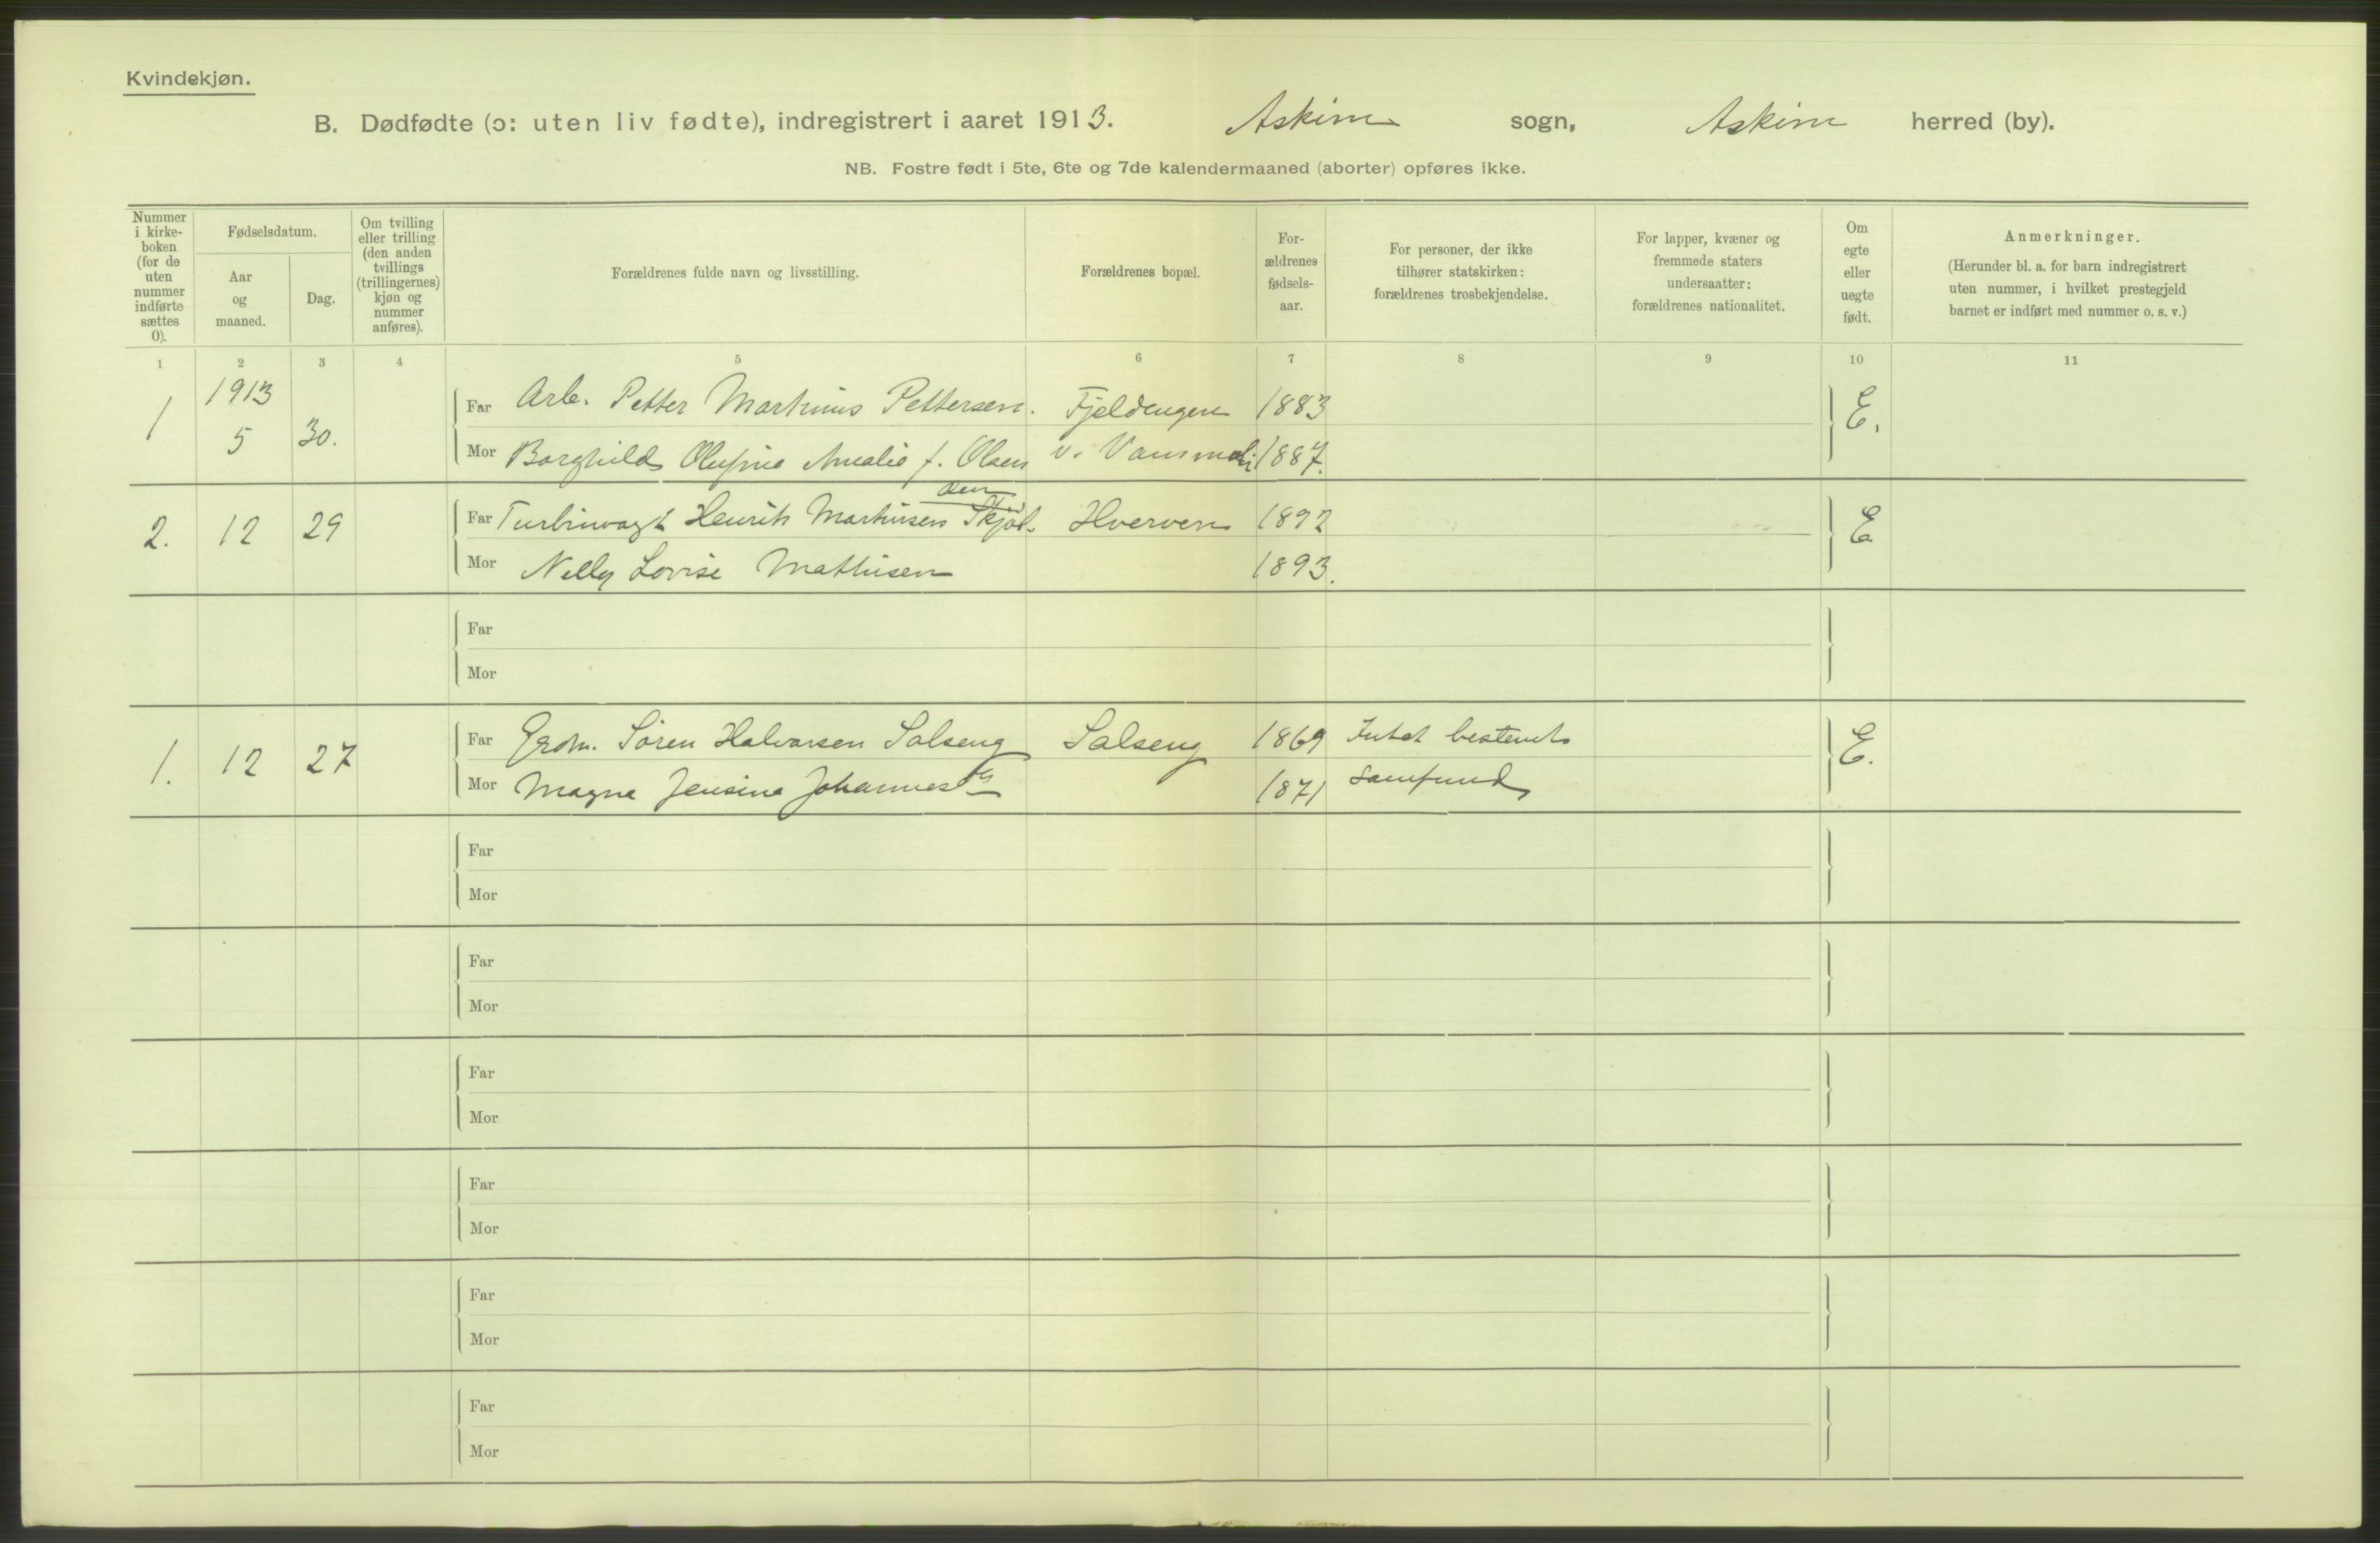 Kvindekjøn.
B. Dødfødte (ɔ: uten liv fødte), indregistrert i aaret 1913. Askim sogn, Askim herred (by).
NB. Fostre født i 5te, 6te og 7de kalendermaaned (aborter) opføres ikke.
Nummer i kirke-boken (for de uten nummer indførte sættes 0).
Fødselsdatum.
Aar og maaned.
Dag.
Om tvilling eller trilling (den anden tvillings (trillingernes) kjøn og nummer anføres).
Forældrenes fulde navn og livsstilling.
Forældrenes bopæl.
For-ældrenes fødsels-aar.
For personer, der ikke tilhører statskirken: forældrenes trosbekjendelse.
For lapper, kvæner og fremmede staters undersaatter: forældrenes nationalitet.
Om egte eller uegte født.
Anmerkninger.
(Herunder bl. a. for barn indregistrert uten nummer, i hvilket prestegjeld barnet er indført med nummer o. s. v.)
1 2 3 4 5 6 7 8 9 10 11
1913
1 5 30. Far Arb. Petter Martinus Pettersen. Fjeldengen 1883 E.
Mor Borghild Olufine Amalie f. Olsen v. Vammeli 1887.
2. 12 29 Far Turbinvagt Henrik Martinsen Skjöl. Hverven 1892 E
Mor Nelly Lovise Mathisen 1893.
Far
Mor
1. 12 27 Far Grdm. Sören Halvorsen Solseng Solseng 1869 Intet bestemt E.
Mor Magna Jensine Johannesdt 1871 samfund
Far
Mor
Far
Mor
Far
Mor
Far
Mor
Far
Mor
Far
Mor